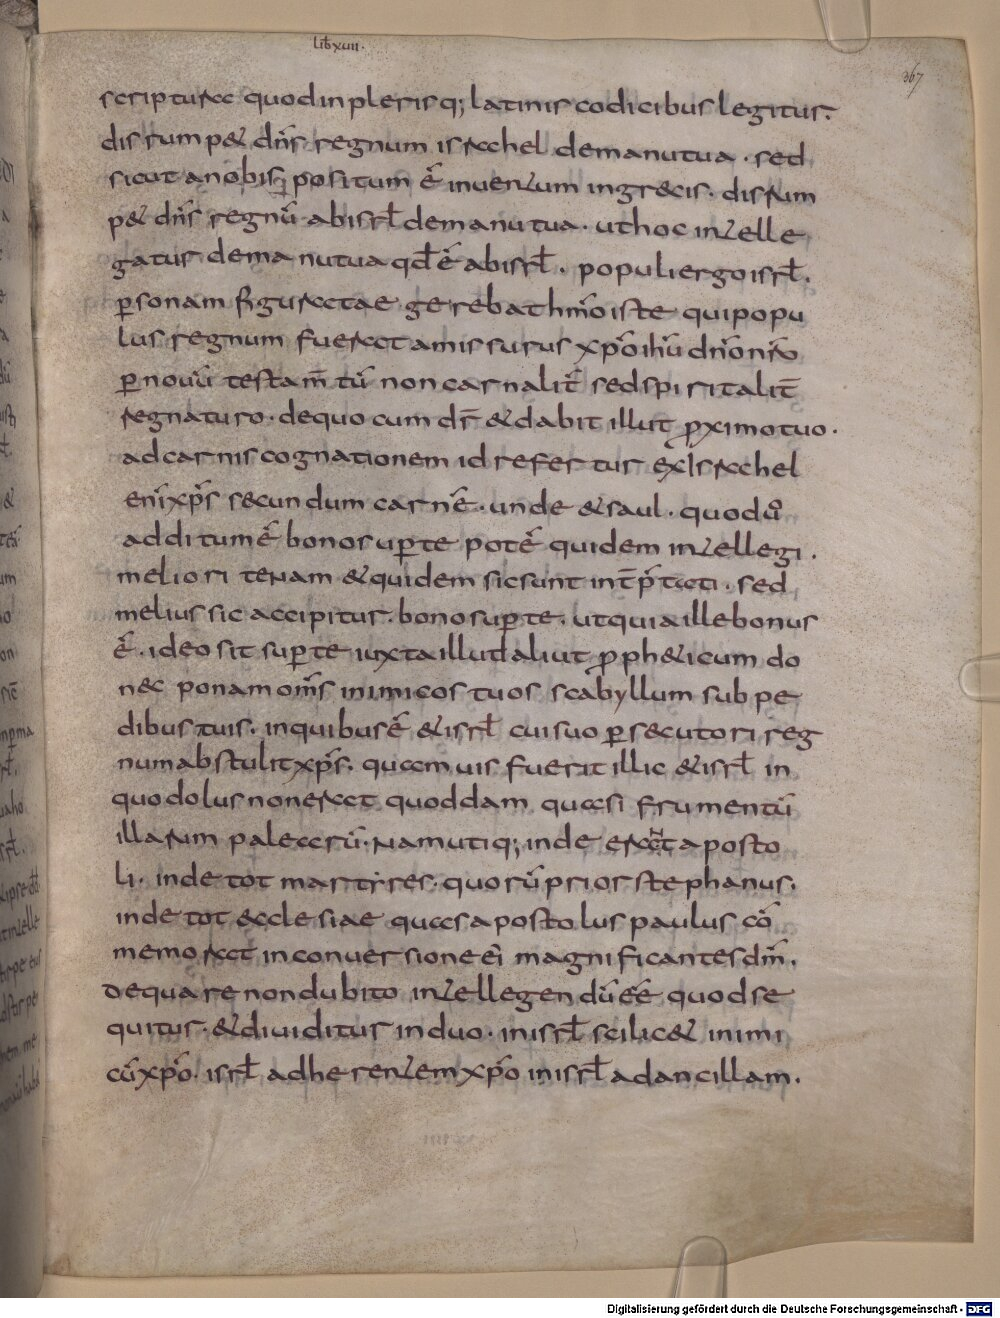 lib xvii·
367
scriptura quod in plerisq; latinis codicibus legitur.
disrumpet dn̄s regnum israhel de manu tua · sed
sicut a nobis positum ē inventum in grecis · disrum
pet dn̄s regnū ab isrl̄ de manu tua · ut hoc intelle
gatur de manu tua qđ ē ab isrl̄ · populi ergo isrl̄ ·
ꝑsonam figurate gerebat homo iste qui popu
lus regnum fuerat amissurus xp̄o ih̄u dn̄o nr̄o
ꝑ novū testam̄tū non carnalit̄ sed spiritalit̄
regnaturo · de quo cum dr̄ & dabit illut ꝓximo tuo ·
ad carnis cognationem id refertur ex israhel
enī xp̄s secundum carnē · unde & saul · quod ū
additum ē bono suꝑ te potē quidem intellegi ·
meliori te nam & quidam sic sunt int̄p̄tati · sed
melius sic accipitur · bono suꝑ te · ut quia ille bonus
ē · ideo sit suꝑ te iuxta illud aliut ꝓph&icum do
nec ponam om̄s inimicos tuos scabyllum sub pe
dibus tuis · in quibus ē & isrl̄ cui suo ꝑsecutori reg
num abstulit xp̄s · quamvis fuerit illic & isrl̄ in
quo dolus non erat quoddam quasi frumentū
illarum palearū · nam utiq; inde erant aposto
li · inde tot martyres · quorū prior stephanus ·
inde tot ecclesiae quas apostolus paulus cō
memorat in conversione eī magnificantes dm̄ ·
de qua re non dubito intellegendū eē quod se
quitur · & dividitur in duo · in isrl̄ scilic& inimi
cū xp̄o · isrl̄ adherentem xp̄o in isrl̄ ad ancillam ·
Digitalisierung gefördert durch die Deutsche Forschungsgemeinschaft - DFG